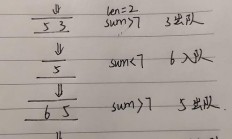 len=2
5 3 sum>7 3出队
5 sum<7 6入队
6 5 sum>7 5出队